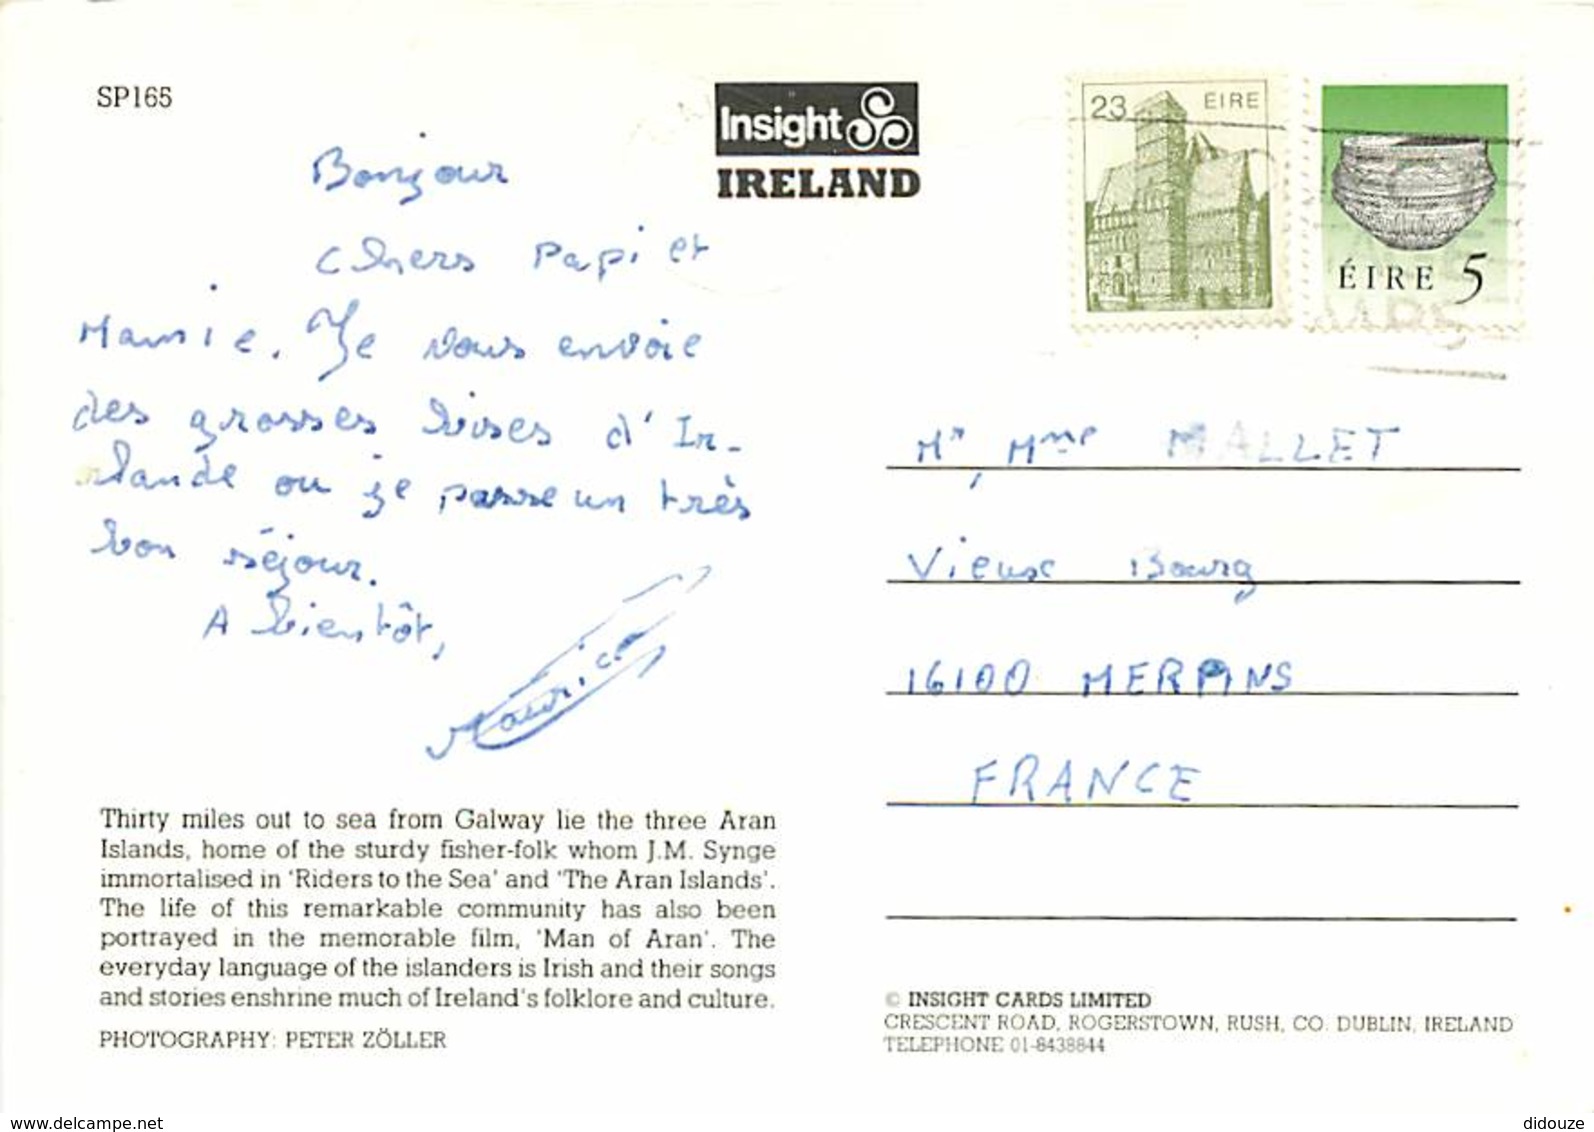 SP165
Insight
IRELAND
23 EIRE
ÉIRE 5
Bonjour
chers Papi et
Mamie. Je vous envoie
des grosses bises d'Ir-
lande ou je passe un très
bon séjour.
A bientôt,
Maurice
Mr, Mme MALLET
Vieux Bourg
16100 MERPINS
FRANCE
Thirty miles out to sea from Galway lie the three Aran
Islands, home of the sturdy fisher-folk whom J.M. Synge
immortalised in 'Riders to the Sea' and 'The Aran Islands'.
The life of this remarkable community has also been
portrayed in the memorable film, 'Man of Aran'. The
everyday language of the islanders is Irish and their songs
and stories enshrine much of Ireland's folklore and culture.
PHOTOGRAPHY: PETER ZÖLLER
© INSIGHT CARDS LIMITED
CRESCENT ROAD, ROGERSTOWN, RUSH, CO. DUBLIN, IRELAND
TELEPHONE 01-8438844
www.delcampe.net
didouze